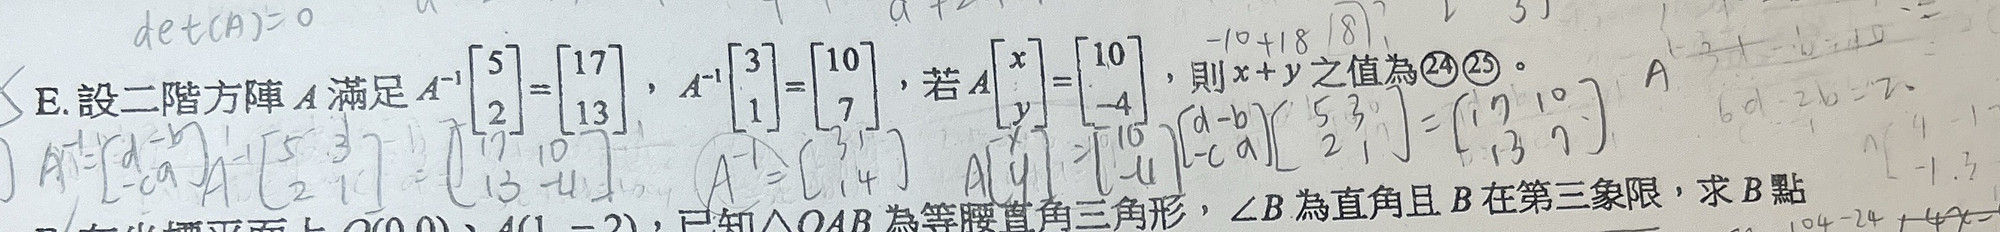 det(A)=0
-10+18 8
E. 設二階方陣 A 滿足 A⁻¹[5 2]=[17 13],A⁻¹[3 1]=[10 7],若 A[x y]=[10 -4],則 x+y 之值為㉔㉕。
A⁻¹=[d -b -c a] A⁻¹[5 3 2 1]=[17 10 13 -4] A⁻¹=[3 1 1 4] A[x y]=[10 -4] [d -b -c a][5 3 2 1]=[17 10 13 7] A
6d-2b=20
4 -1
-1 3
O(0,0)、A(1,-2),已知△OAB 為等腰直角三角形,∠B 為直角且 B 在第三象限,求 B 點
104-24